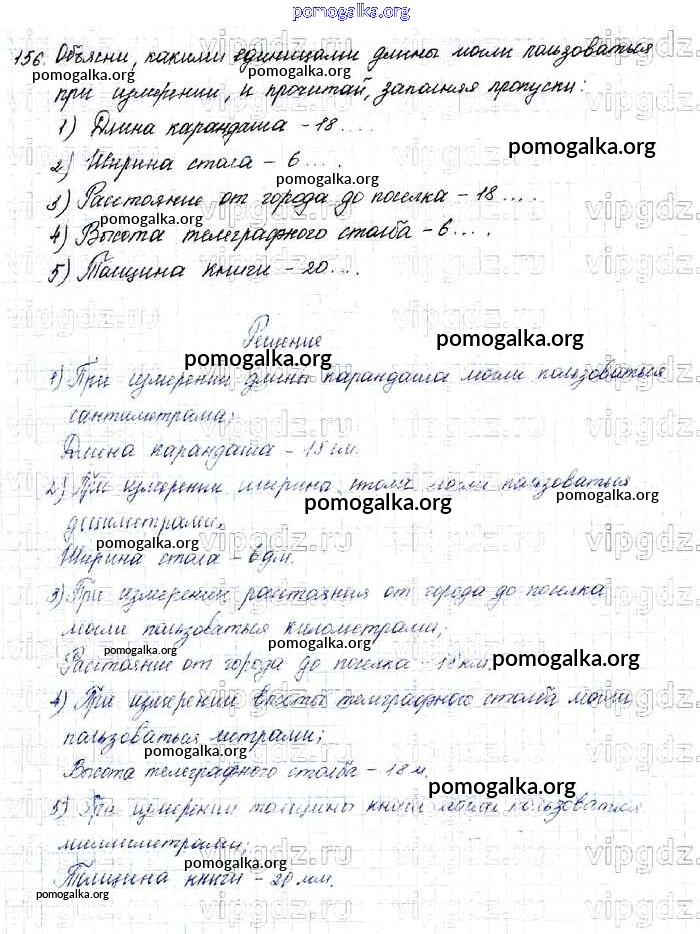 pomogalka.org
156. Объясни, какими единицами длины могли пользоваться
pomogalka.org
при измерении, и прочитай, заполняя пропуски:
1) Длина карандаша – 18 ....
pomogalka.org
2) Ширина стола – 6 ....
pomogalka.org
3) Расстояние от города до поселка – 18 ....
pomogalka.org
4) Высота телеграфного столба – 6 ....
5) Толщина книги – 20 ....
vipgdz.ru
Решение
pomogalka.org
pomogalka.org
1) При измерении длины карандаша могли пользоваться
сантиметрами;
pomogalka.org
Длина карандаша – 18 см.
2) При измерении ширина стола могли пользоваться
pomogalka.org
pomogalka.org
дециметрами.
pomogalka.org
Ширина стола – 6 дм.
3) При измерении расстояния от города до поселка
могли пользоваться километрами;
pomogalka.org
pomogalka.org
Расстояние от города до поселка – 18 км.
pomogalka.org
4) При измерении высоты телеграфного столба могли
пользоваться метрами;
pomogalka.org
Высота телеграфного столба – 18 м.
pomogalka.org
5) При измерении толщины книги могли пользоваться
миллиметрами;
pomogalka.org
Толщина книги – 20 мм.
pomogalka.org